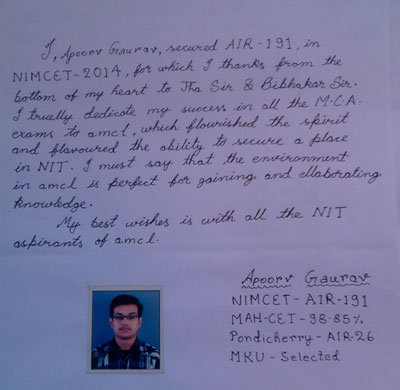 I, Apoorv Gaurav, secured AIR-191, in
NIMCET-2014, for which I thanks from the
bottom of my heart to Jha Sir & Bibhakar Sir.
I truelly dedicate my success in all the M.C.A.
exams to amcl, which flourished the spirit
and flavoured the ability to secure a place
in NIT. I must say that the environment
in amcl is perfect for gaining and ellaborating
knowledge.
My best wishes is with all the NIT
aspirants of amcl.
Apoorv Gaurav
NIMCET - AIR-191
MAH-CET - 98.85%
Pondicherry - AIR-26
MKU - Selected